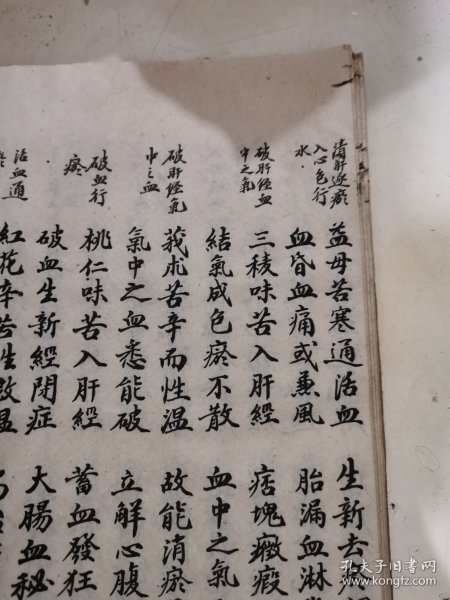 清肝逐瘀
入心包行
水
益母苦寒通活血
生新去瘀
血昏血痛或兼風
胎漏血淋
破肝經血
中之氣
三稜味苦入肝經
痞塊癥瘕
結氣成色瘀不散
血中之氣
破肝經氣
中之血
莪朮苦辛而性温
故能消瘀
氣中之血悉能破
立解心腹
破血行
瘀
桃仁味苦入肝經
蓄血發狂
破血生新經閉症
大腸血秘
活血通
紅花辛苦生散温
孔夫子旧书网
www.kongfz.com